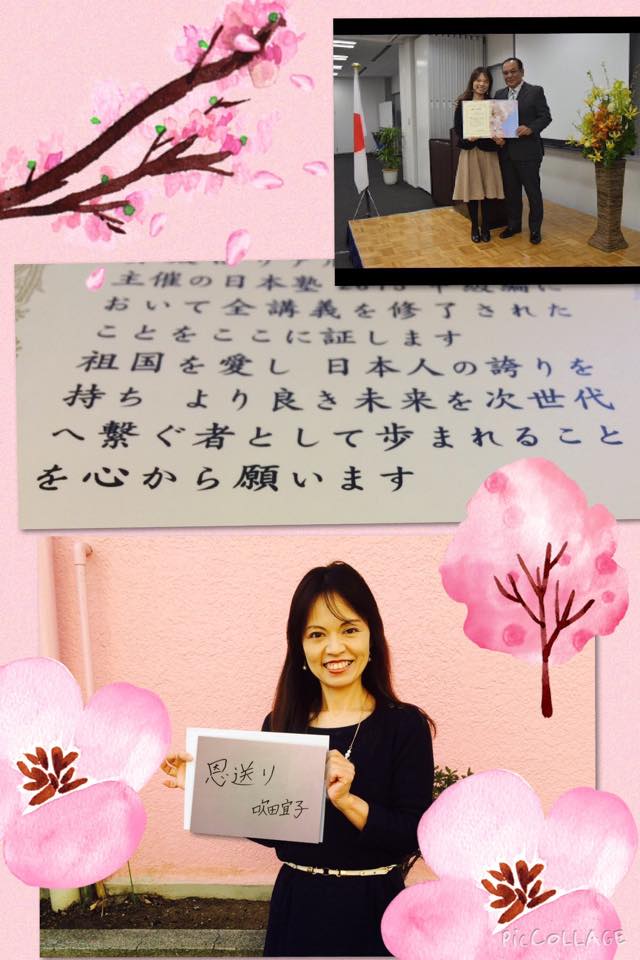 主催の日本塾
おいて全講義を修了された
ことをここに証します
祖国を愛し 日本人の誇りを
持ち より良き未来を次世代
へ繋ぐ者として歩まれること
を心から願います
恩送り
吹田宜子
PicCOLLAGE